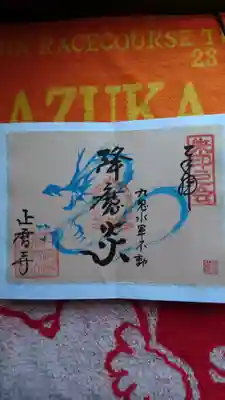 RACECOURSE T
23
AZUKA
奉拝
九鬼水軍不動
降魔炎
正暦寺